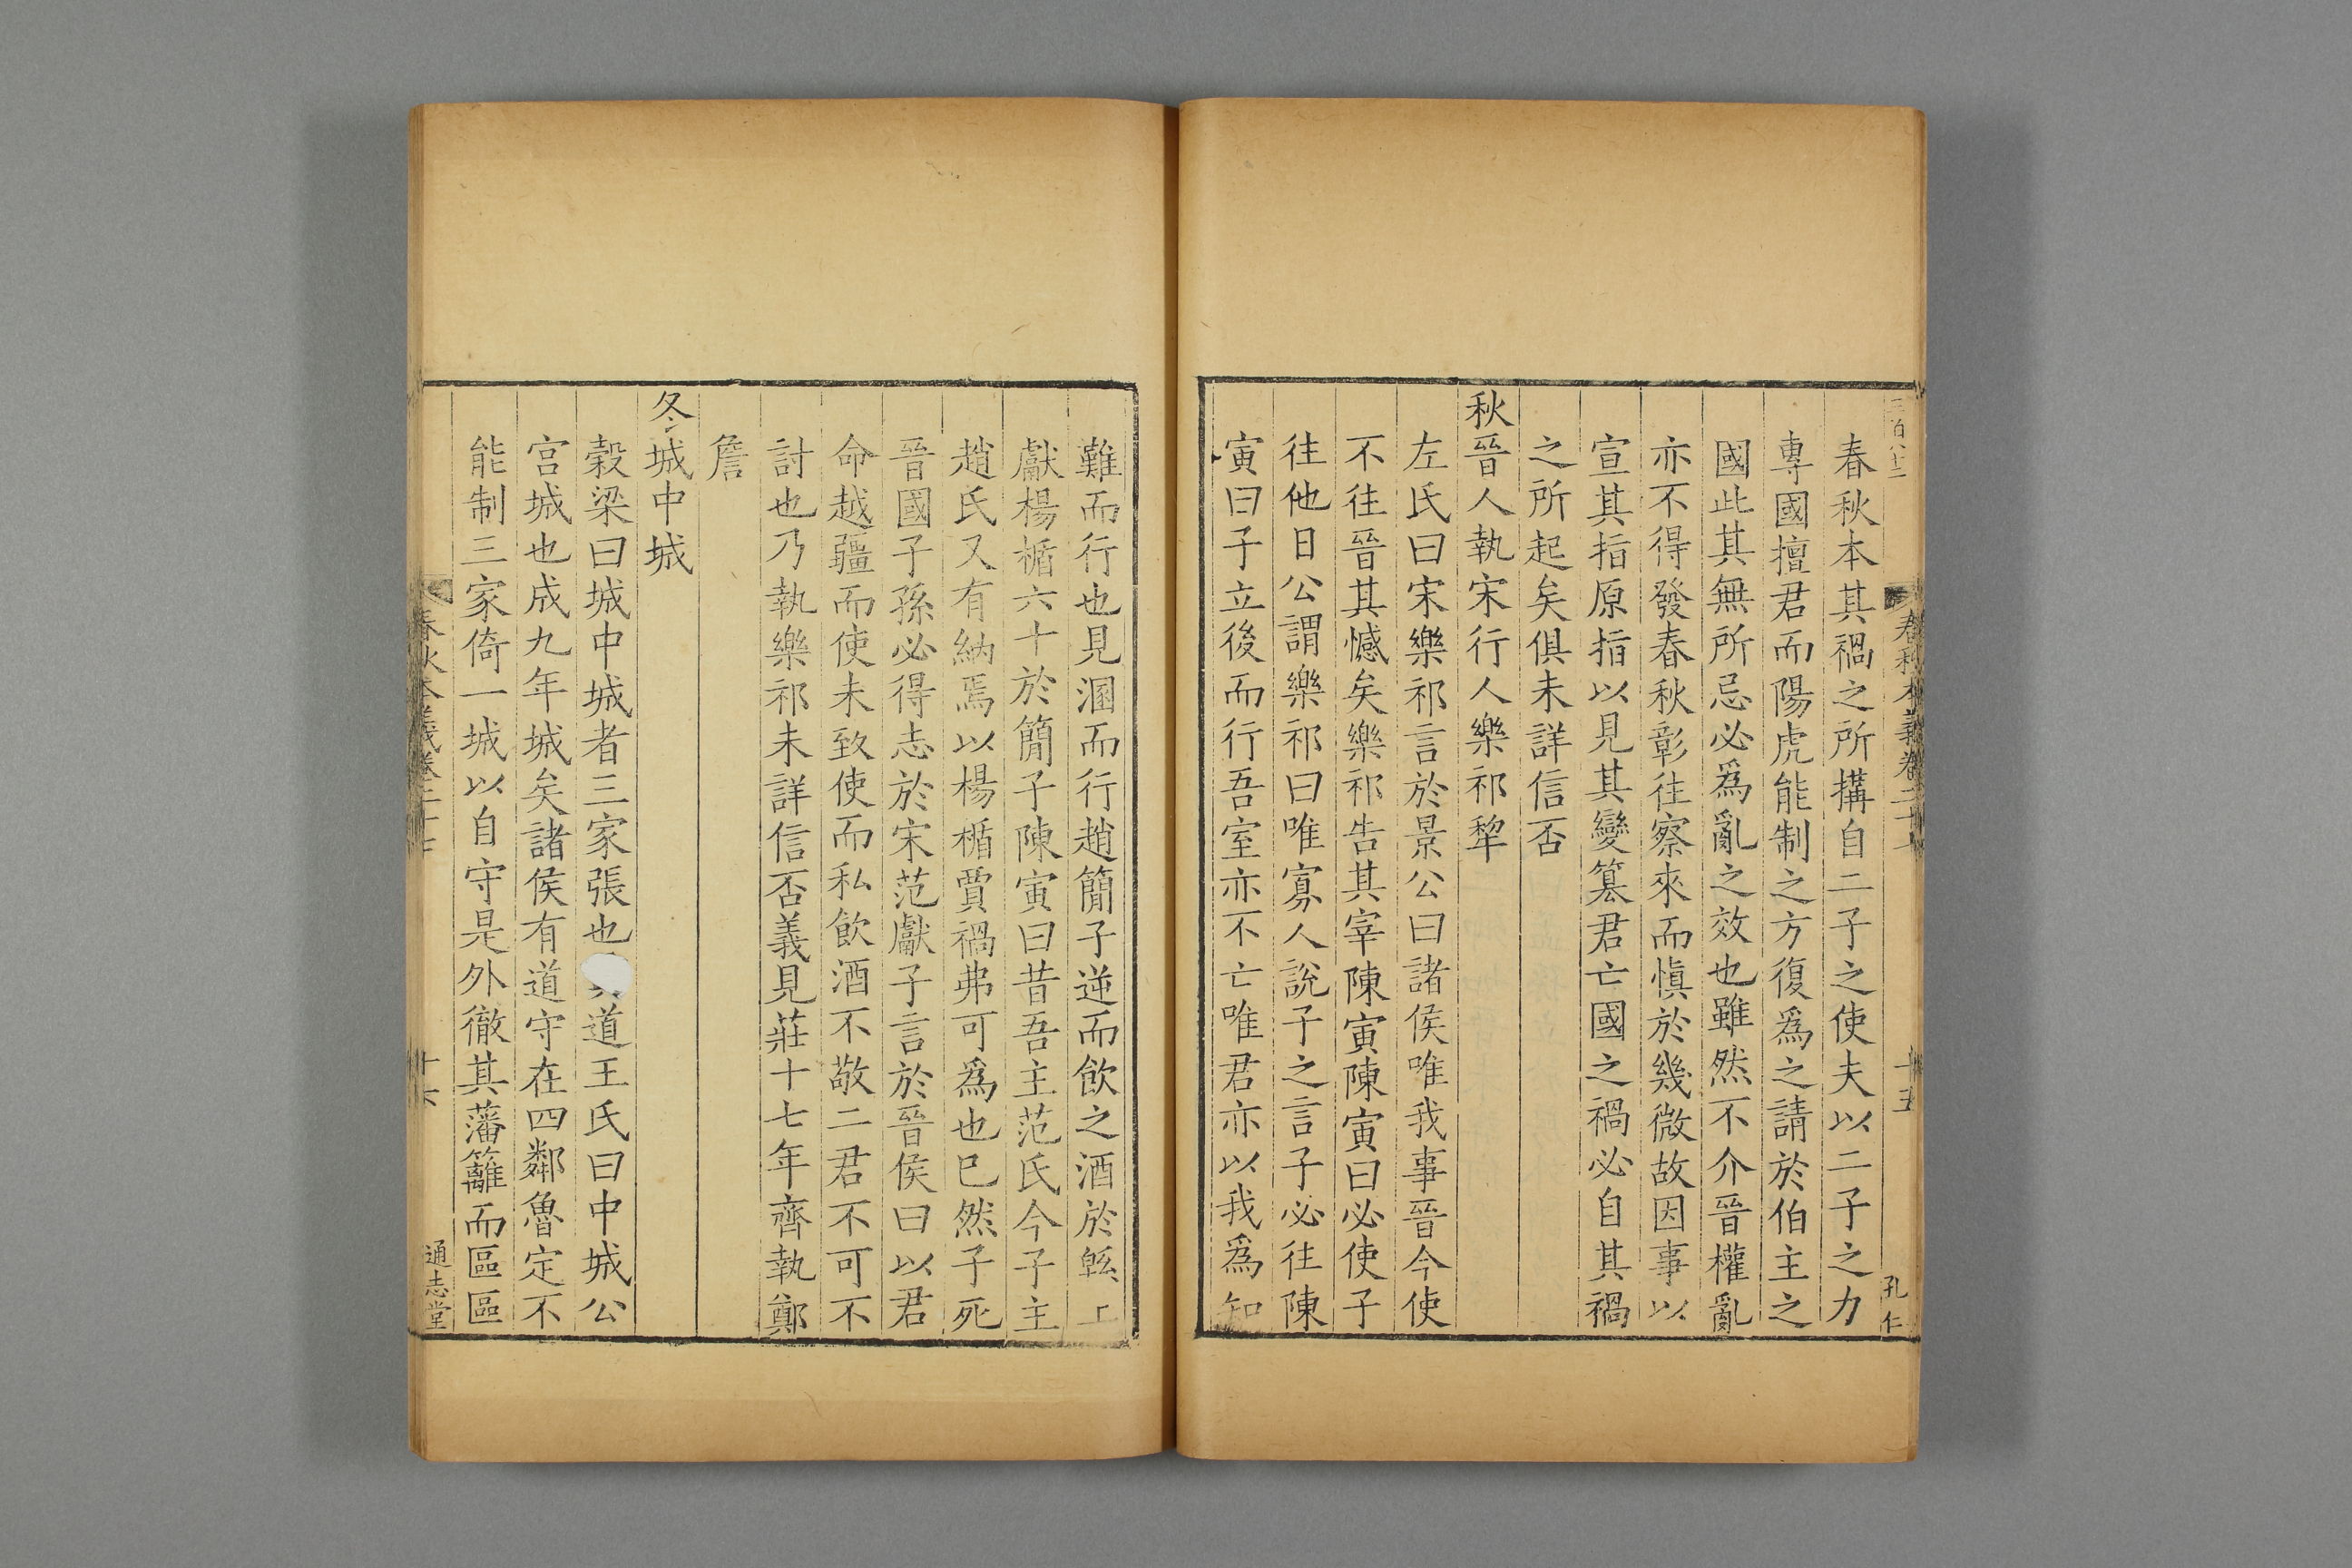 春秋本義卷二十七
十五
孔仁
春秋本其禍之所搆自二子之使夫以二子之力
專國擅君而陽虎能制之方復爲之請於伯主之
國此其無所忌必爲亂之效也雖然不介晉權亂
亦不得發春秋彰往察來而愼於幾微故因事以
宣其指原指以見其變簒君亡國之禍必自其禍
之所起矣俱未詳信否
秋晉人執宋行人樂祁犂
左氏曰宋樂祁言於景公曰諸侯唯我事晉今使
不往晉其憾矣樂祁告其宰陳寅陳寅曰必使子
往他日公謂樂祁曰唯寡人說子之言子必往陳
寅曰子立後而行吾室亦不亡唯君亦以我爲知
難而行也見溷而行趙簡子逆而飮之酒於緜上
獻楊楯六十於簡子陳寅曰昔吾主范氏今子主
趙氏又有納焉以楊楯賈禍弗可爲也已然子死
晉國子孫必得志於宋范獻子言於晉侯曰以君
命越疆而使未致使而私飮酒不敬二君不可不
討也乃執樂祁未詳信否義見莊十七年齊執鄭
詹
冬城中城
穀梁曰城中城者三家張也 道王氏曰中城公
宮城也成九年城矣諸侯有道守在四鄰魯定不
能制三家倚一城以自守是外徹其藩籬而區區
春秋本義卷二十七
十六
通志堂